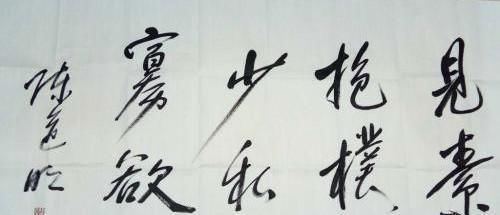 見素
抱樸
少私
寡欲
陳道明